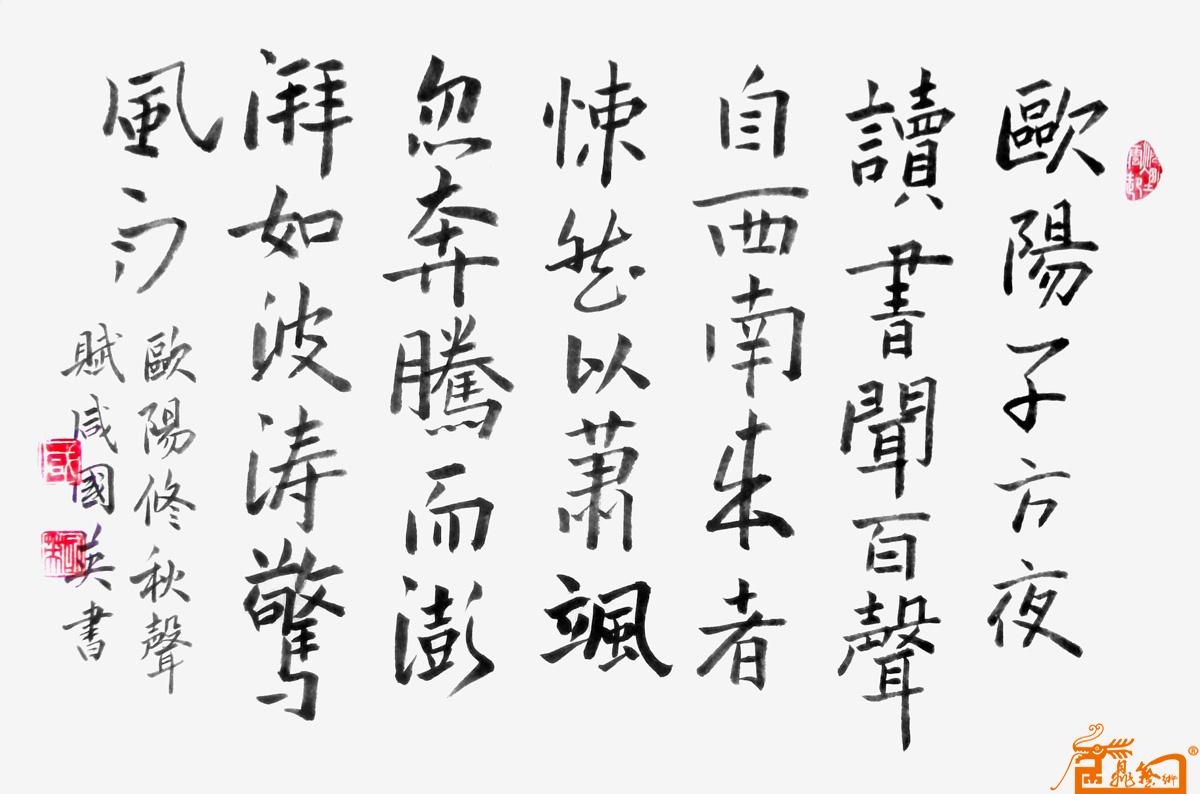 歐陽子方夜
讀書聞百聲
自西南来者
悚然以蕭颯
忽奔騰而澎
湃如波涛驚
風雨
歐陽修秋聲
賦咸國英書